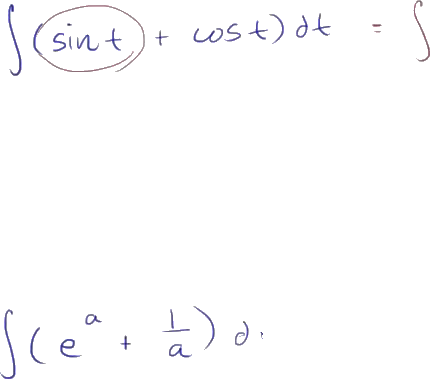 ∫(sin t + cos t) dt = ∫
∫(e^a + 1/a) d